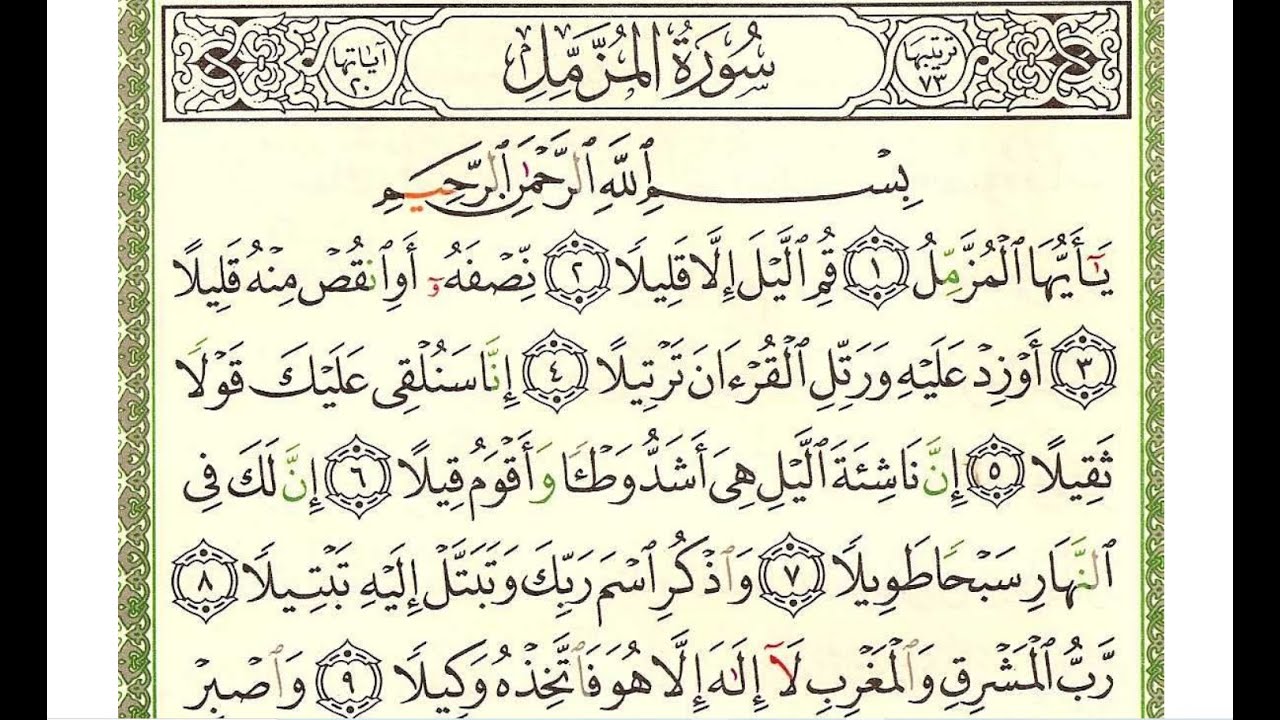 ترتيبها ٧٣
سُورَةُ الْمُزَّمِّلِ
آياتها ٢٠
بِسْمِ ٱللَّهِ ٱلرَّحْمَٰنِ ٱلرَّحِيمِ
يَٰٓأَيُّهَا ٱلْمُزَّمِّلُ ١ قُمِ ٱلَّيْلَ إِلَّا قَلِيلًا ٢ نِّصْفَهُۥٓ أَوِ ٱنقُصْ مِنْهُ قَلِيلًا
٣ أَوْ زِدْ عَلَيْهِ وَرَتِّلِ ٱلْقُرْءَانَ تَرْتِيلًا ٤ إِنَّا سَنُلْقِى عَلَيْكَ قَوْلًا
ثَقِيلًا ٥ إِنَّ نَاشِئَةَ ٱلَّيْلِ هِىَ أَشَدُّ وَطْـًٔا وَأَقْوَمُ قِيلًا ٦ إِنَّ لَكَ فِى
ٱلنَّهَارِ سَبْحًا طَوِيلًا ٧ وَٱذْكُرِ ٱسْمَ رَبِّكَ وَتَبَتَّلْ إِلَيْهِ تَبْتِيلًا ٨
رَّبُّ ٱلْمَشْرِقِ وَٱلْمَغْرِبِ لَآ إِلَٰهَ إِلَّا هُوَ فَٱتَّخِذْهُ وَكِيلًا ٩ وَٱصْبِرْ